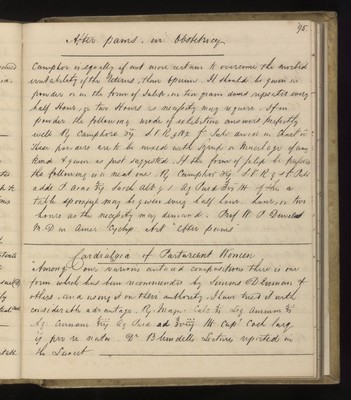 95.
After pains. in Obstetricy
Camphor is equally if not more certain to overcome the morbid
irritability of the Uterus, than opium. It should be given in
powder or in the form of Julep in ten grain doses repeated every
half Hour, or two Hours as necessity may require. If in
powder the following mode of exhibition answers perfectly
well Rx Camphorae
These powders are to be mixed with syrup or Mucilage of any
kind & given as just suggested. If the form of julep be preferred
the following is a neat one. Rx Camphor
adde P. Acac Sacch alb of this a
table spoonful may be given every half hour, hour, or two
hours as the necessity may demand. Prof W. P. Dewees
M.D in Amer. Cyclop. Art "After pains"
Cardialgia of Parturient Women
"Among our various antacid compositions there is one
form which has been recommended by Denman &
others, and using it on their authority, I have tried it with
considerable advantage. Rx Magn. Calc
Aq. Cinnam Aq Pura ad capt Coch larg
ij pro re nata. Dr Blundell's Lectures reported in
the Lancet